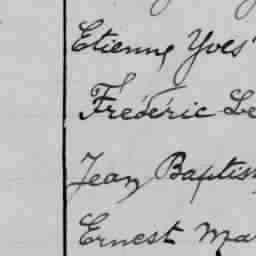 Etienne Yves
Frédéric Le
Jean Baptis
Ernest Ma